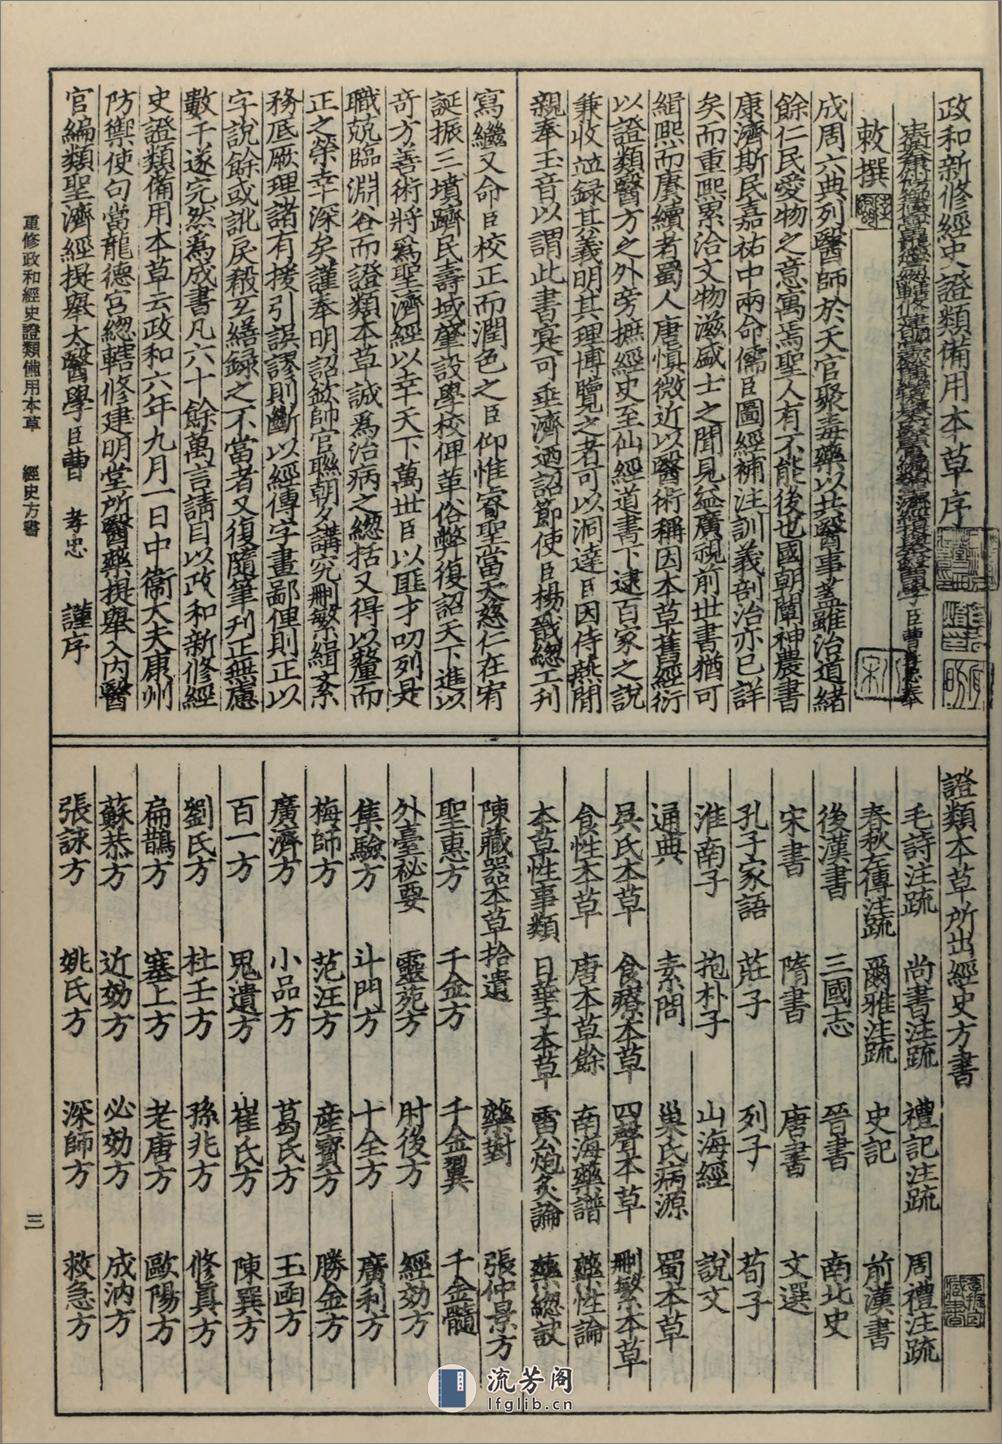 政和新修經史證類備用本草序
敕撰
成周六典列醫師於天官聚毒藥以共醫事蓋雖治道緒
餘仁民愛物之意寓焉聖人有不能後也國朝闡神農書
康濟斯民嘉祐中兩命儒臣圖經補注訓義剖治亦已詳
矣而重熙累洽文物滋盛士之聞見益廣視前世書猶可
緝熙而賡續者蜀人唐慎微近以醫術稱因本草舊經衍
以證類醫方之外旁摭經史至仙經道書下逮百家之說
兼收並録其義明其理博覽之者可以洞達臣因侍燕閒
親奉玉音以謂此書實可垂濟迺詔節使臣楊戩總工刊
寫繼又命臣校正而潤色之臣仰惟睿聖當天慈仁在宥
誕振三墳躋民壽域肇設學校俾革俗弊復詔天下進以
奇方善術將爲聖濟經以幸天下萬世臣以匪才叨列是
職兢臨淵谷而證類本草誠爲治病之總括又得以釐而
正之榮幸深矣謹奉明詔欽帥官聯朝夕講究刪繁緝紊
務底厥理諸有援引誤謬則斷以經傳字畫鄙俚則正以
字說餘或訛戾殽互繕録之不當者又復隨筆刊正無慮
數千遂完然爲成書凡六十餘萬言請目以政和新修經
史證類備用本草云政和六年九月一日中衛大夫康州
防禦使句當龍德宮總轄修建明堂所醫藥提舉入內醫
官編類聖濟經提舉太醫學臣曹 孝忠 謹序
證類本草所出經史方書
毛詩注疏 尚書注疏 禮記注疏 周禮注疏
春秋左傳注疏 爾雅注疏 史記 前漢書
後漢書 三國志 晉書 南北史
宋書 隋書 唐書 文選
孔子家語 莊子 列子 荀子
淮南子 抱朴子 山海經 說文
通典 素問 巢氏病源 蜀本草
吳氏本草 食療本草 四聲本草 刪繁本草
食性本草 唐本草餘 南海藥譜 藥性論
本草性事類 日華子本草 雷公炮炙論 藥總訣
陳藏器本草拾遺 藥對 張仲景方
聖惠方 千金方 千金翼 千金髓
外臺秘要 靈苑方 肘後方 經効方
集驗方 斗門方 十全方 廣利方
梅師方 范汪方 產寶方 勝金方
廣濟方 小品方 葛氏方 玉函方
百一方 鬼遺方 崔氏方 陳巽方
劉氏方 杜壬方 孫兆方 修眞方
扁鵲方 塞上方 老唐方 歐陽方
蘇恭方 近効方 必効方 成訥方
張詠方 姚氏方 深師方 救急方
重修政和經史證類備用本草 經史方書
三
流芳阁
lfglib.cn